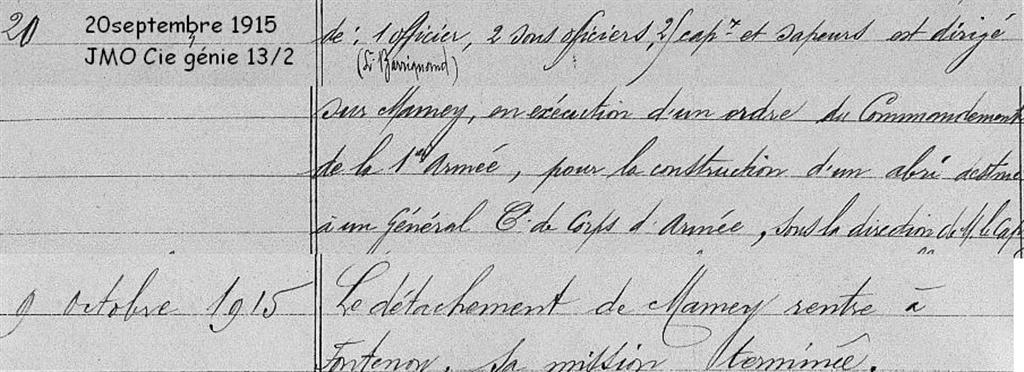 20
20septembre 1915
JMO Cie génie 13/2
de: 1 officier, 2 sous officiers, 2 cap.x et sapeurs est dirigé
sur Mamey, en exécution d'un ordre du Commandement
de la 1re Armée, pour la construction d'un abri destiné
à un Général Ct. de Corps d'Armée, sous la direction de M. le Cap
9 Octobre 1915
Le détachement de Mamey rentre à
Fontenoy, sa mission terminée.